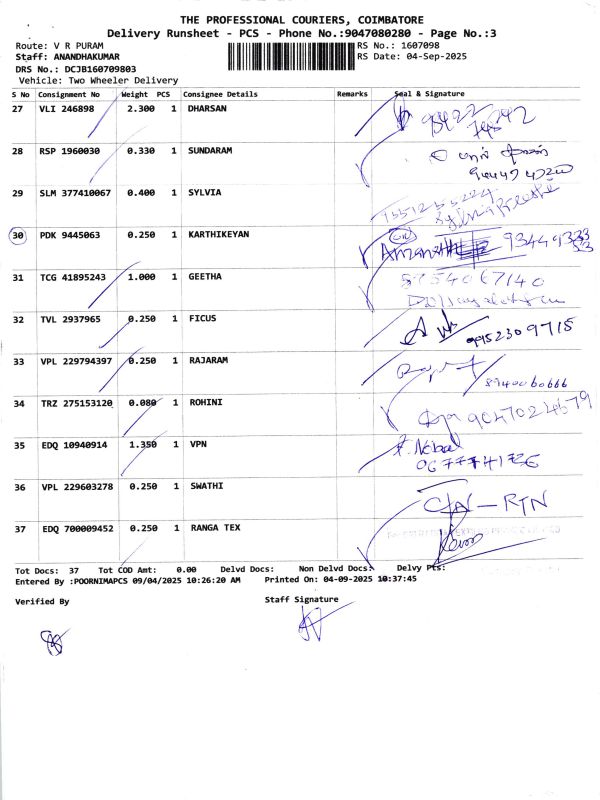 THE PROFESSIONAL COURIERS, COIMBATORE
Delivery Runsheet - PCS - Phone No.:9047080280 - Page No.:3
Route: V R PURAM RS No.: 1607098
Staff: ANANDHAKUMAR RS Date: 04-Sep-2025
DRS No.: DCJB160709803
Vehicle: Two Wheeler Delivery
S No Consignment No Weight PCS Consignee Details Remarks Seal & Signature
27 VLI 246898 2.300 1 DHARSAN
28 RSP 1960030 0.330 1 SUNDARAM
29 SLM 377410067 0.400 1 SYLVIA
30 PDK 9445063 0.250 1 KARTHIKEYAN
31 TCG 41895243 1.000 1 GEETHA 8754067140
32 TVL 2937965 0.250 1 FICUS 9952309715
33 VPL 229794397 0.250 1 RAJARAM
8940060666
34 TRZ 275153120 0.080 1 ROHINI
35 EDQ 10940914 1.350 1 VPN
36 VPL 229603278 0.250 1 SWATHI
C/N - RTN
37 EDQ 700009452 0.250 1 RANGA TEX
Tot Docs: 37 Tot COD Amt: 0.00 Delvd Docs: Non Delvd Docs: Delvy Pts:
Entered By :POORNIMAPCS 09/04/2025 10:26:20 AM Printed On: 04-09-2025 10:37:45
Verified By Staff Signature